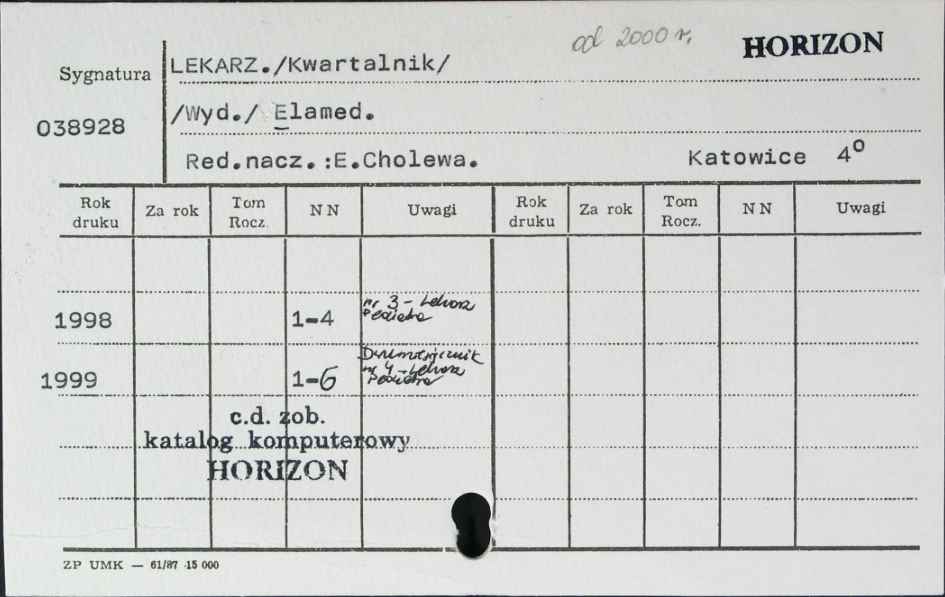 od 2000 r.
HORIZON
Sygnatura
LEKARZ./Kwartalnik/
038928
/Wyd./ Elamed.
Red.nacz.:E.Cholewa. Katowice 4º
Rok druku Za rok Tom Rocz. N N Uwagi Rok druku Za rok Tom Rocz. N N Uwagi
1998 1-4 nr 3 - Lekarz
Pediatra
1999 1-6 Dwumiesięcznik
nr 4 - Lekarz
Pediatra
c.d. zob.
katalog komputerowy
HORIZON
ZP UMK — 61/87 15 000